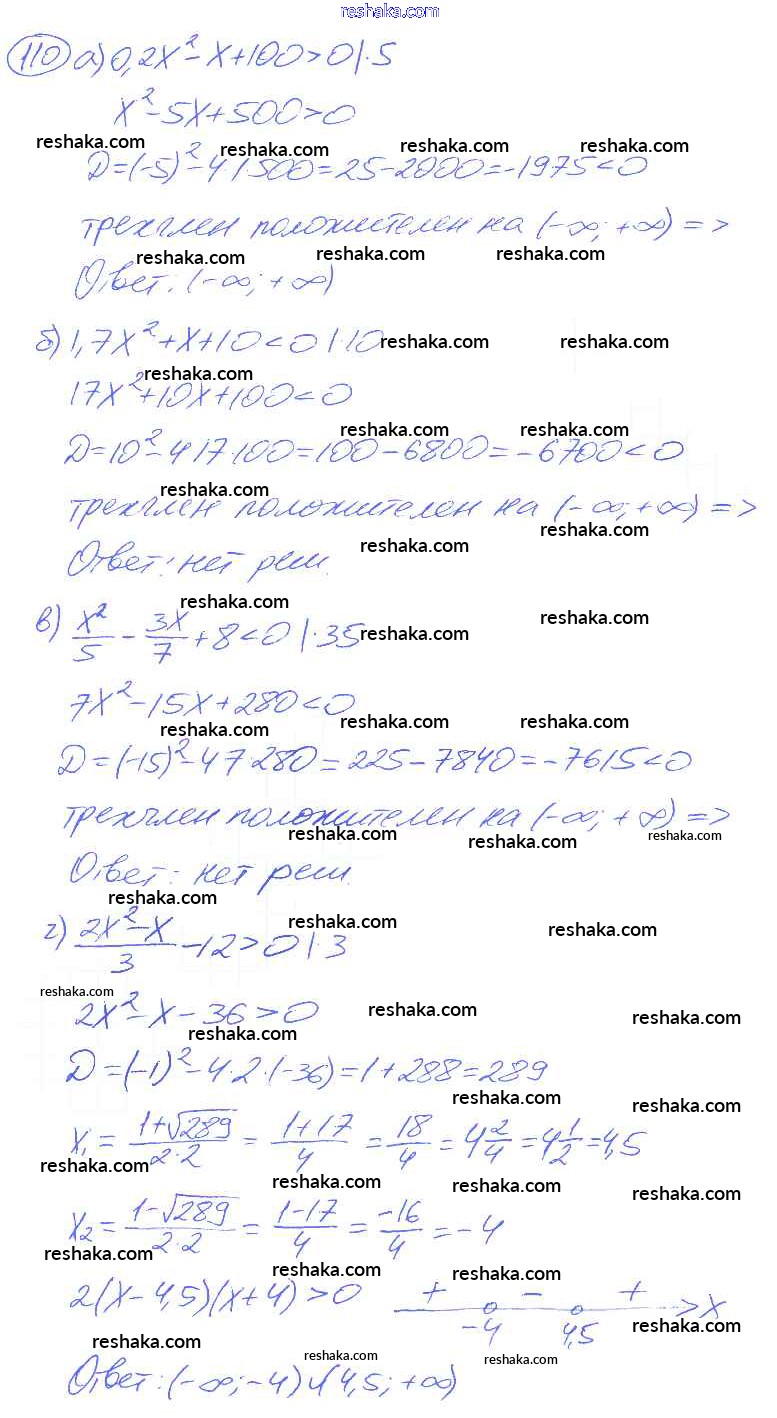 reshaka.com
110 а) 0,2x² - x + 100 > 0 | · 5
x² - 5x + 500 > 0
reshaka.com reshaka.com reshaka.com reshaka.com
D = (-5)² - 4 · 1 · 500 = 25 - 2000 = -1975 < 0
трехчлен положителен на (-∞; +∞) =>
reshaka.com reshaka.com reshaka.com
Ответ: (-∞; +∞)
б) 1,7x² + x + 10 < 0 | · 10 reshaka.com reshaka.com
reshaka.com
17x² + 10x + 100 < 0
reshaka.com reshaka.com
D = 10² - 4 · 17 · 100 = 100 - 6800 = -6700 < 0
reshaka.com
трехчлен положителен на (-∞; +∞) =>
reshaka.com
reshaka.com
Ответ: нет реш.
reshaka.com
reshaka.com
в) x²/5 - 3x/7 + 8 < 0 | · 35 reshaka.com
7x² - 15x + 280 < 0
reshaka.com reshaka.com reshaka.com
D = (-15)² - 4 · 7 · 280 = 225 - 7840 = -7615 < 0
трехчлен положителен на (-∞; +∞) =>
reshaka.com reshaka.com reshaka.com
Ответ: нет реш.
reshaka.com
reshaka.com reshaka.com
г) (2x² - x)/3 - 12 > 0 | · 3
reshaka.com
2x² - x - 36 > 0 reshaka.com reshaka.com
reshaka.com
D = (-1)² - 4 · 2 · (-36) = 1 + 288 = 289
reshaka.com reshaka.com
x₁ = (1+√289)/(2·2) = (1+17)/4 = 18/4 = 4 2/4 = 4 1/2 = 4,5
reshaka.com reshaka.com reshaka.com reshaka.com
x₂ = (1-√289)/(2·2) = (1-17)/4 = -16/4 = -4
reshaka.com reshaka.com reshaka.com
2(x - 4,5)(x + 4) > 0 + - + x
-4 4,5 reshaka.com
reshaka.com reshaka.com reshaka.com
Ответ: (-∞; -4) ∪ (4,5; +∞)